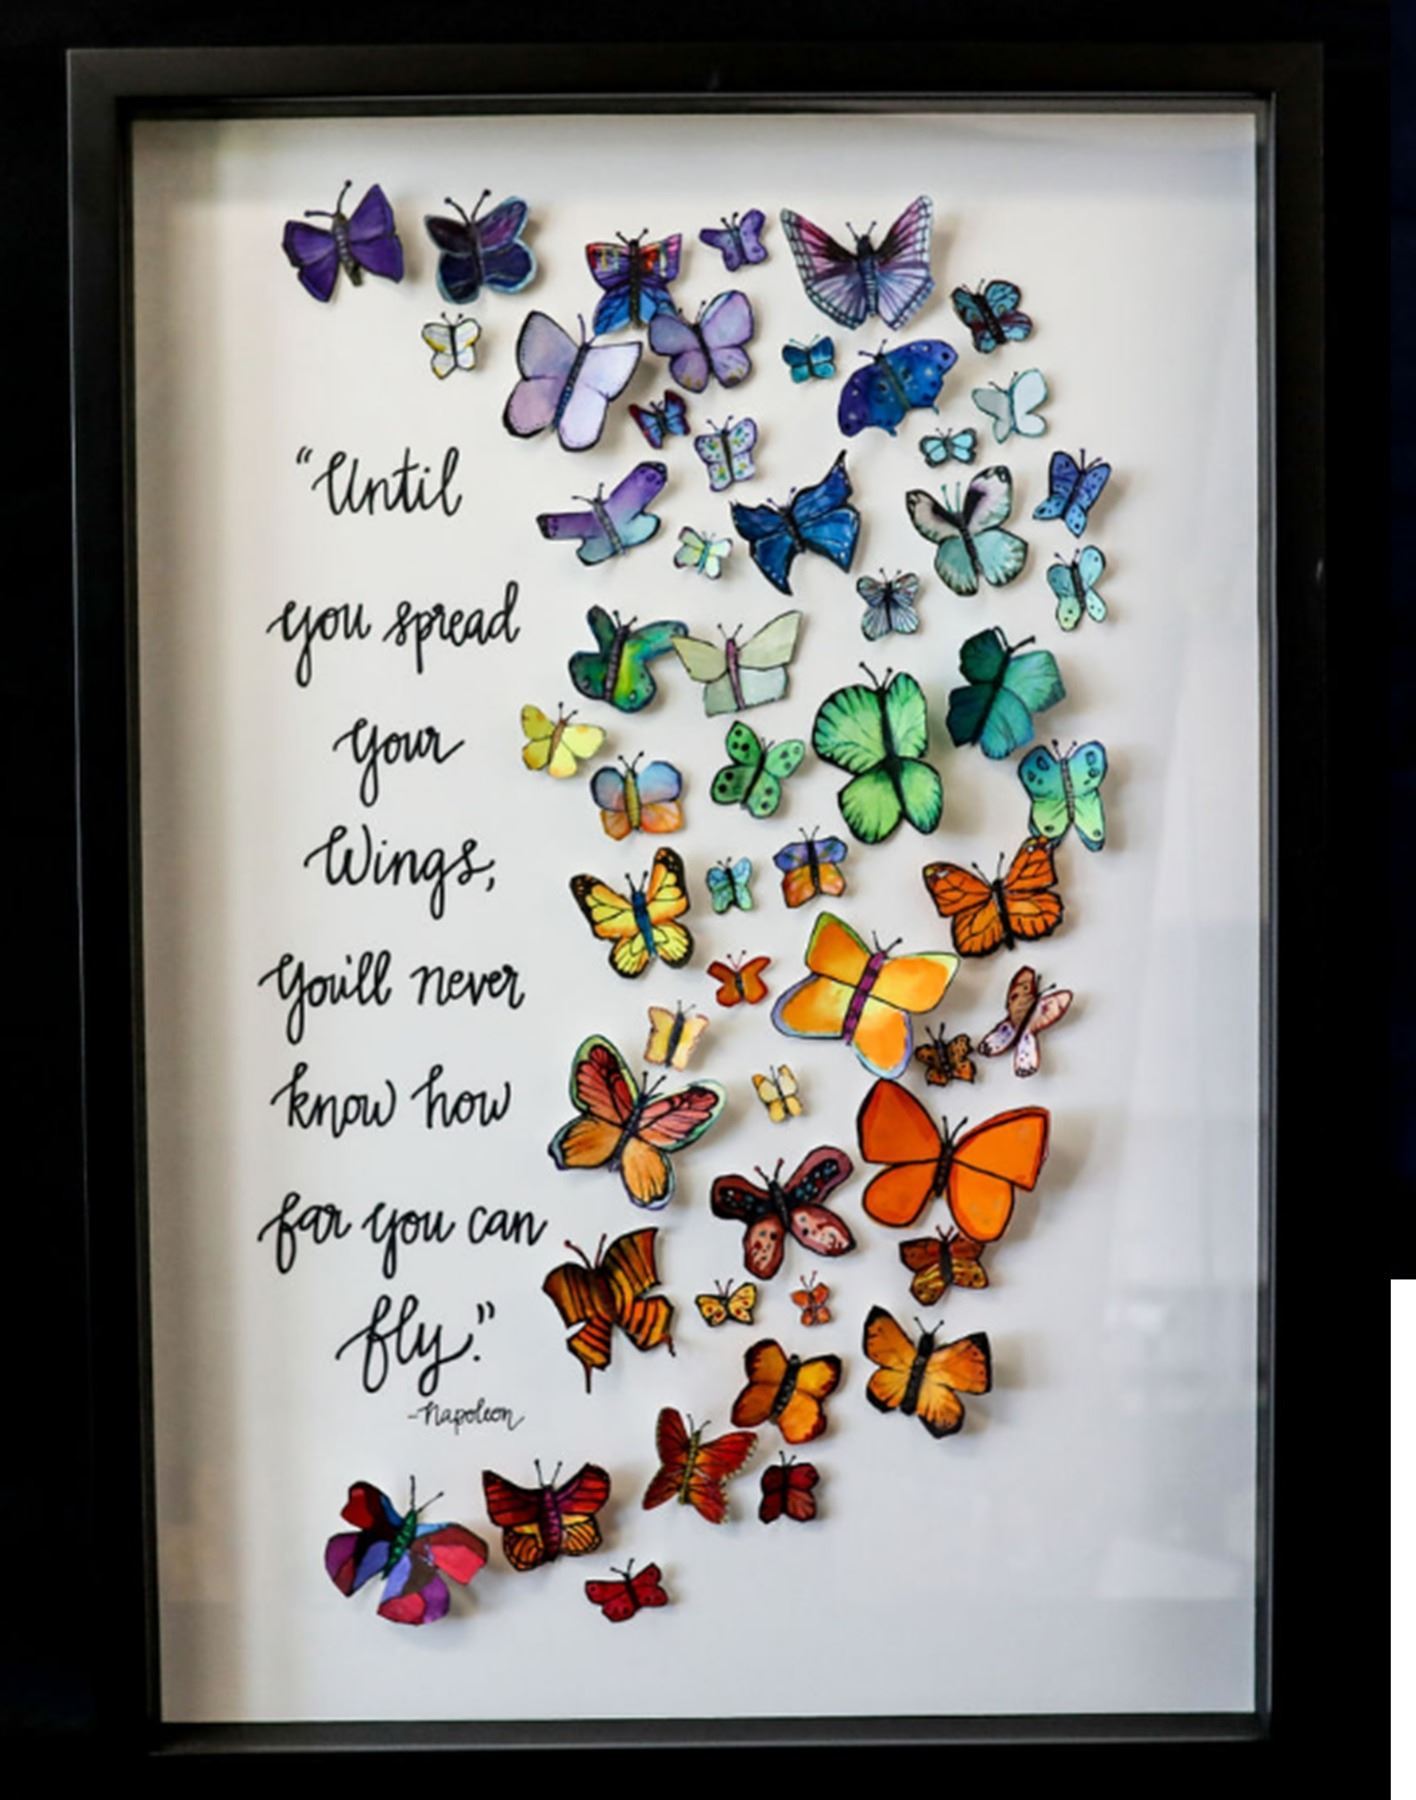 "Until
you spread
your
Wings,
You'll never
know how
far you can
fly."
-Napoleon